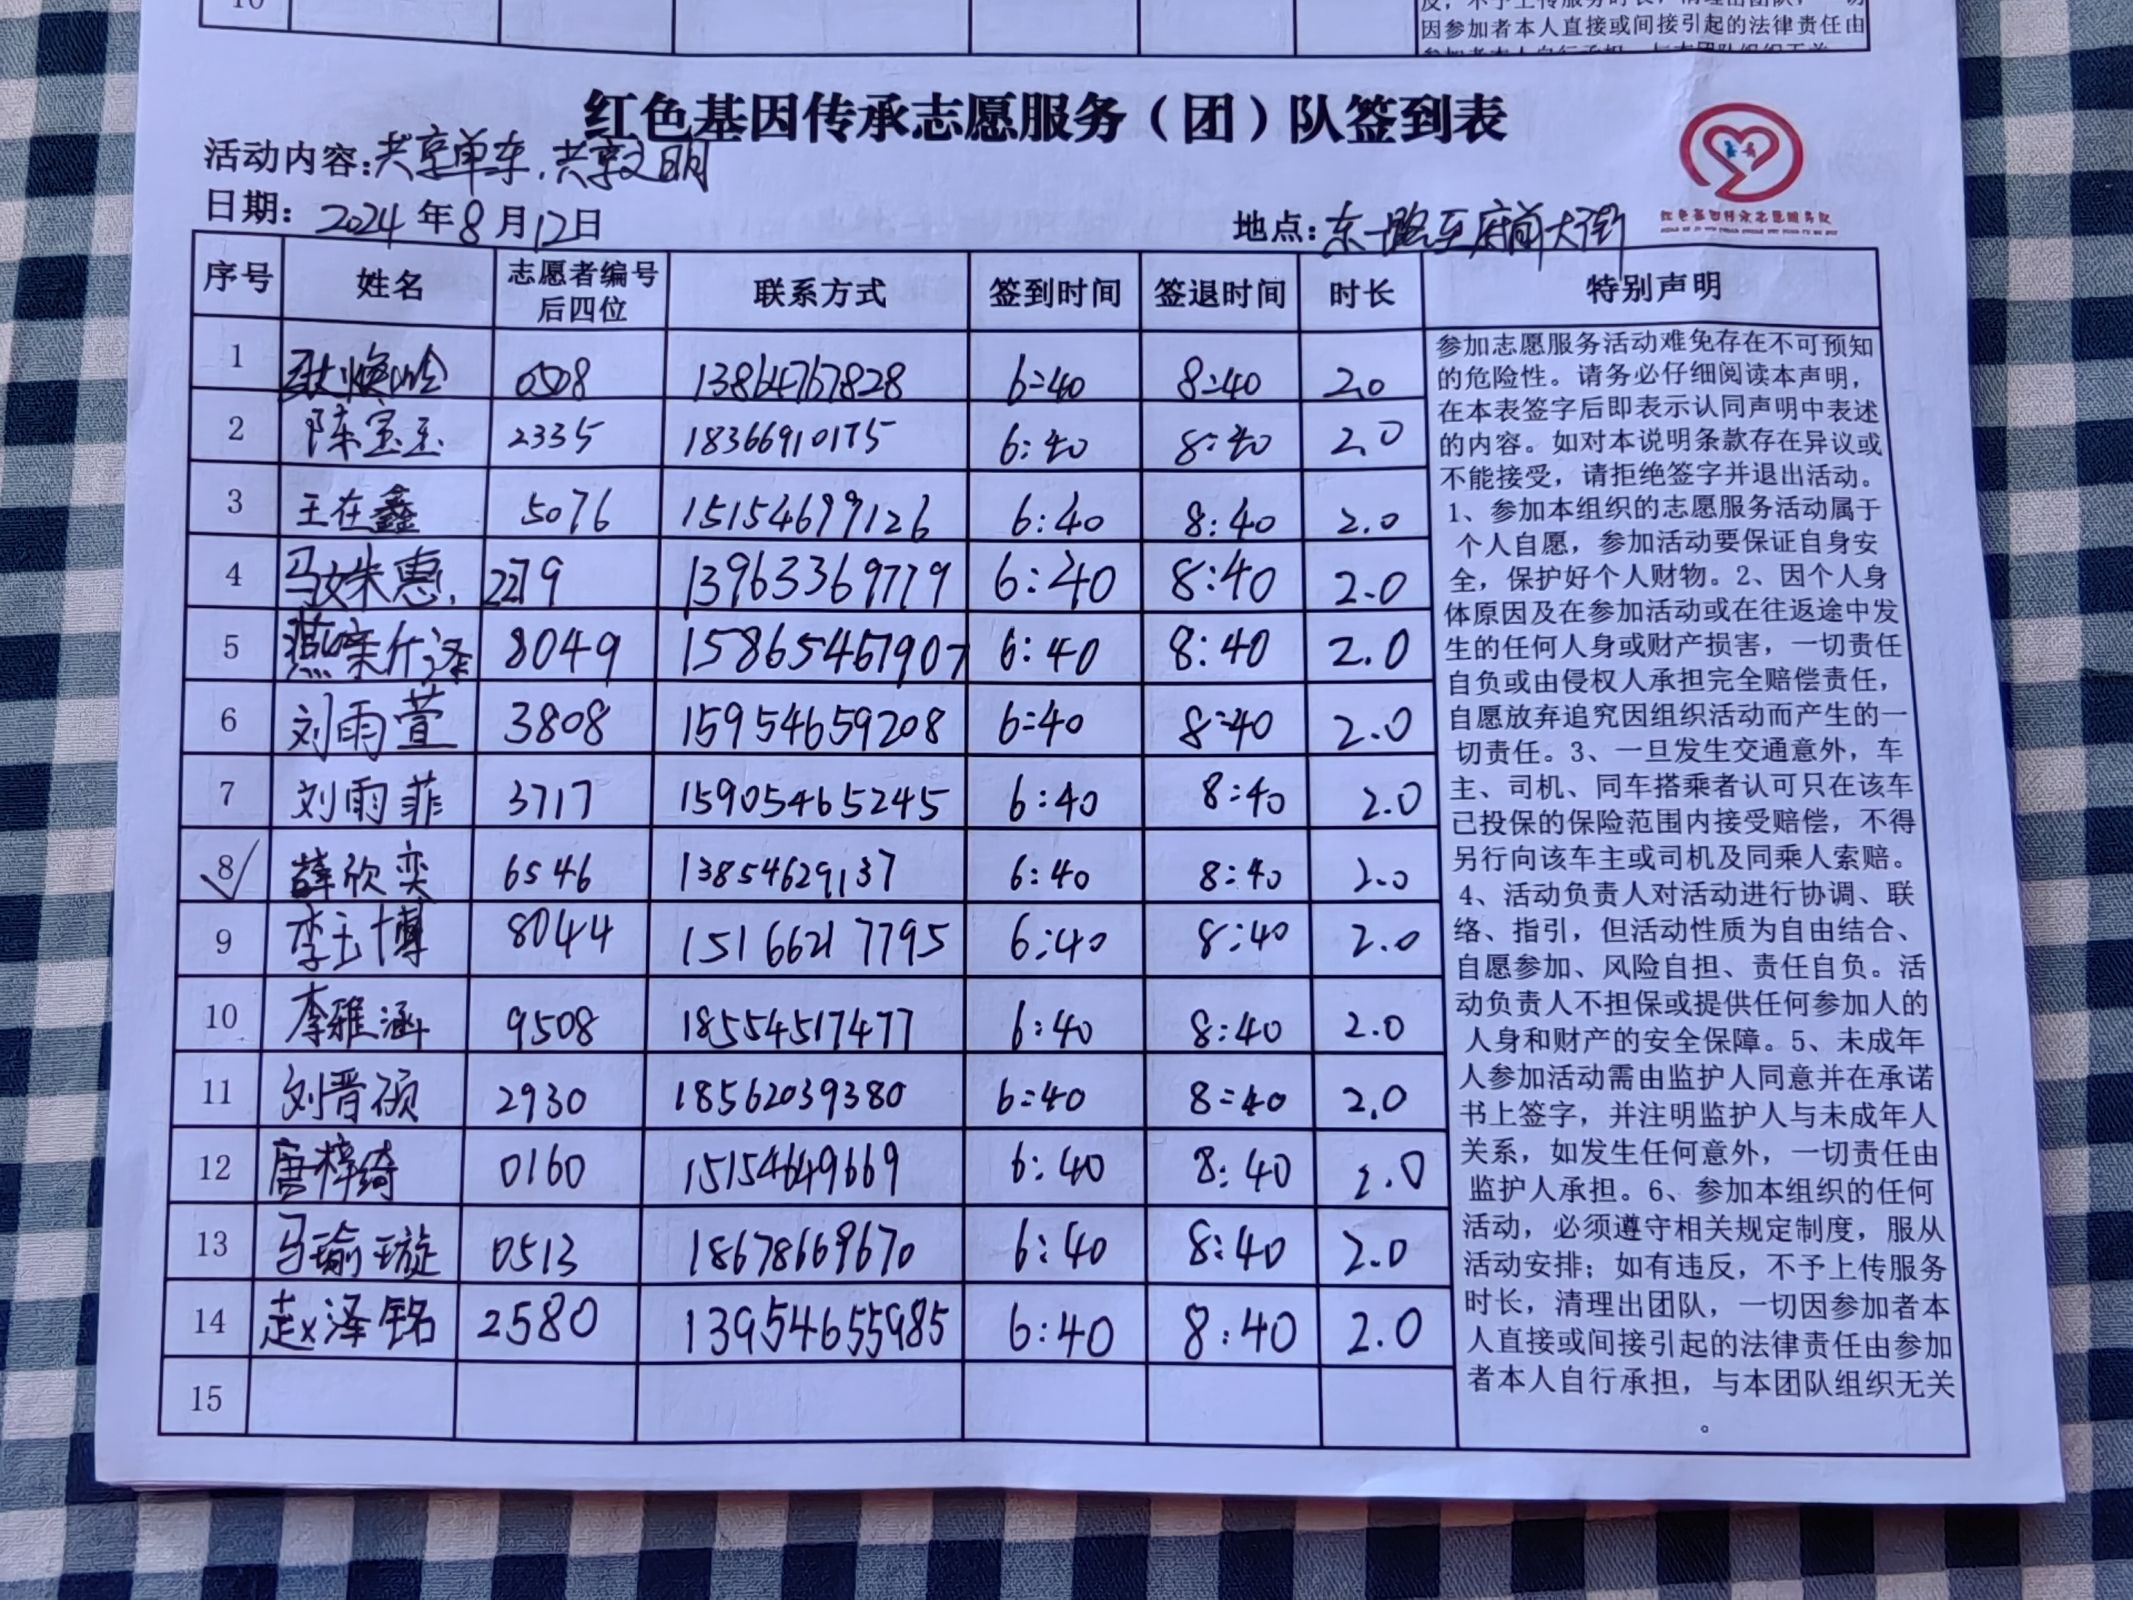 10
因参加者本人直接或间接引起的法律责任由
红色基因传承志愿服务（团）队签到表
活动内容:共享单车,共享文明
日期: 2024年8月12日 地点:东一路至府前大街
红色基因传承志愿服务队
序号 姓名 志愿者编号后四位 联系方式 签到时间 签退时间 时长 特别声明
1 0508 13864767828 6:40 8:40 2.0
2 陈宝玉 2335 18366910175 6:40 8:40 2.0
3 王在鑫 5076 15154699126 6:40 8:40 2.0
4 马姝惠 2279 13963369779 6:40 8:40 2.0
5 8049 15865467907 6:40 8:40 2.0
6 刘雨萱 3808 15954659208 6:40 8:40 2.0
7 刘雨菲 3717 15905465245 6:40 8:40 2.0
8 薛欣奕 6546 13854629137 6:40 8:40 2.0
9 李玉博 8044 15166217795 6:40 8:40 2.0
10 李雅涵 9508 18554517477 6:40 8:40 2.0
11 刘晋硕 2930 18562039380 6:40 8:40 2.0
12 唐梓绮 0160 15154649669 6:40 8:40 2.0
13 马瑜璇 0513 18678669670 6:40 8:40 2.0
14 赵泽铭 2580 13954655985 6:40 8:40 2.0
15
参加志愿服务活动难免存在不可预知
的危险性。请务必仔细阅读本声明，
在本表签字后即表示认同声明中表述
的内容。如对本说明条款存在异议或
不能接受，请拒绝签字并退出活动。
1、参加本组织的志愿服务活动属于
个人自愿，参加活动要保证自身安
全，保护好个人财物。2、因个人身
体原因及在参加活动或在往返途中发
生的任何人身或财产损害，一切责任
自负或由侵权人承担完全赔偿责任，
自愿放弃追究因组织活动而产生的一
切责任。3、一旦发生交通意外，车
主、司机、同车搭乘者认可只在该车
已投保的保险范围内接受赔偿，不得
另行向该车主或司机及同乘人索赔。
4、活动负责人对活动进行协调、联
络、指引，但活动性质为自由结合、
自愿参加、风险自担、责任自负。活
动负责人不担保或提供任何参加人的
人身和财产的安全保障。5、未成年
人参加活动需由监护人同意并在承诺
书上签字，并注明监护人与未成年人
关系，如发生任何意外，一切责任由
监护人承担。6、参加本组织的任何
活动，必须遵守相关规定制度，服从
活动安排；如有违反，不予上传服务
时长，清理出团队，一切因参加者本
人直接或间接引起的法律责任由参加
者本人自行承担，与本团队组织无关
。